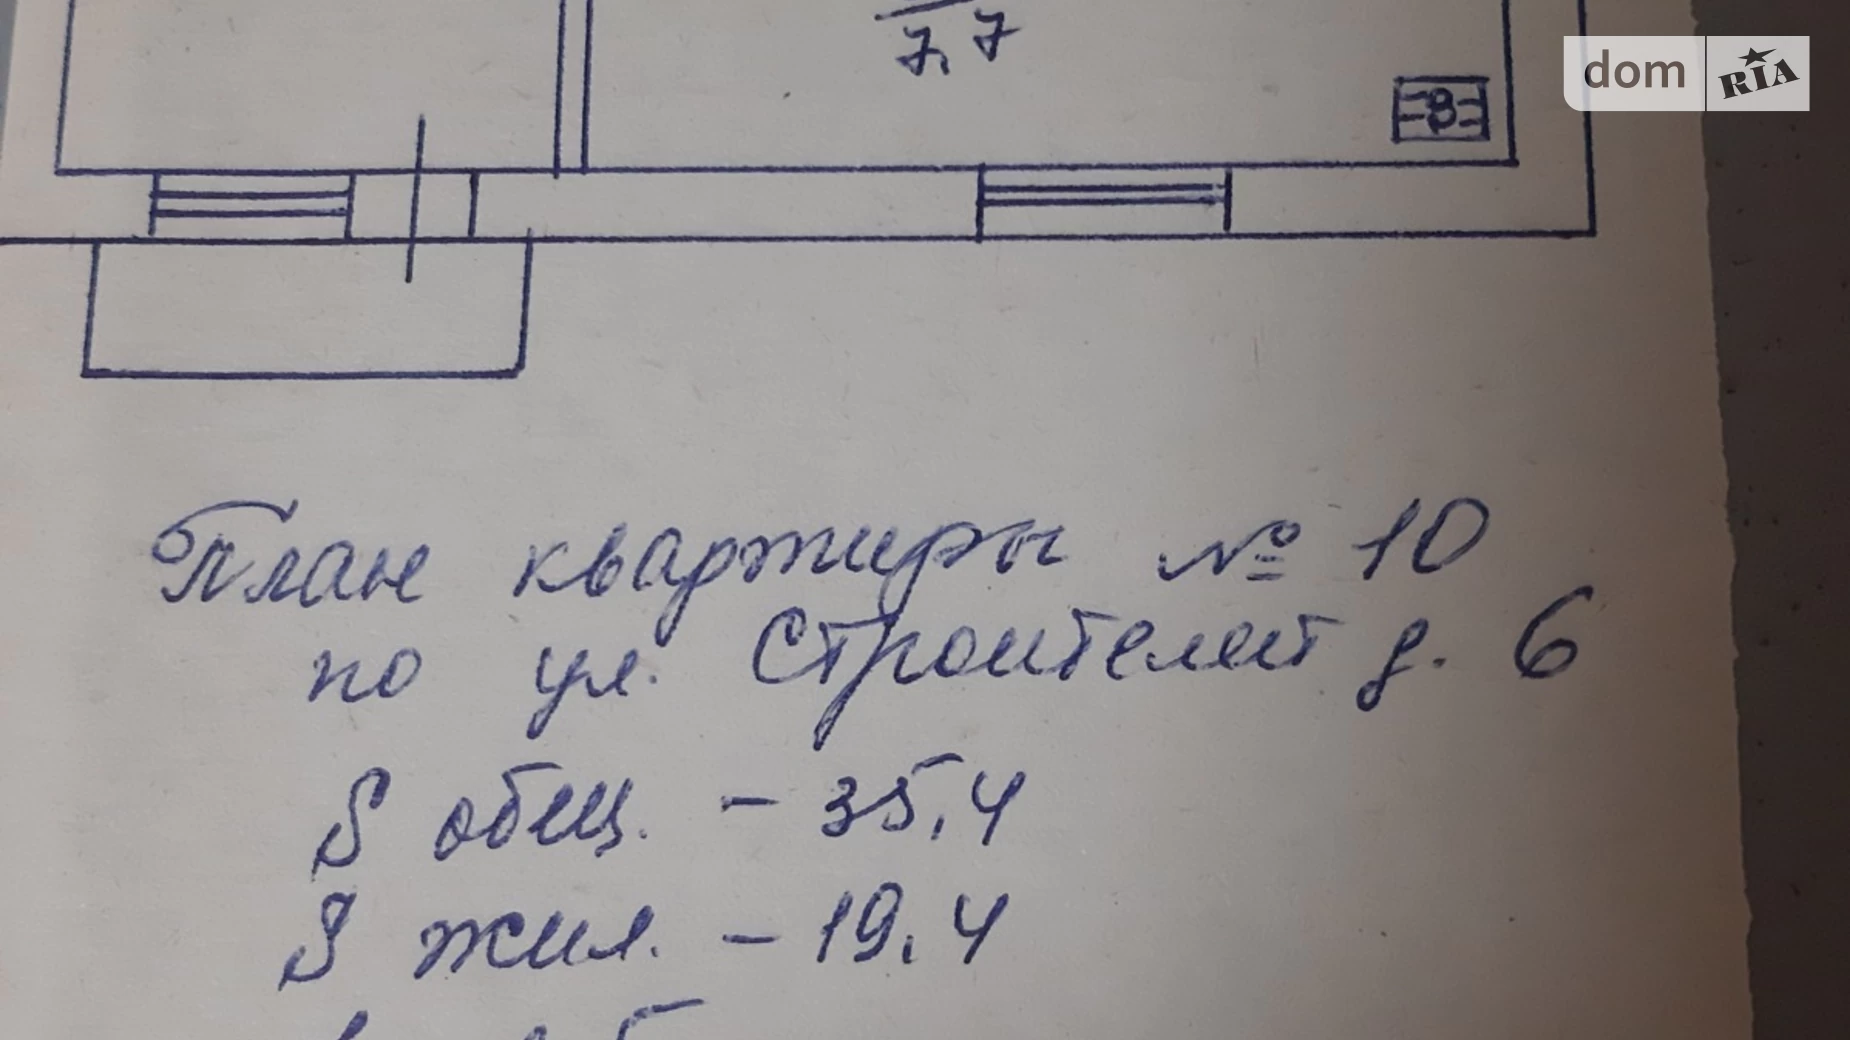 7,7
dom RIA
В
План квартиры № 10
по ул. Строителей д. 6
S общ. - 35,4
S жил. - 19,4